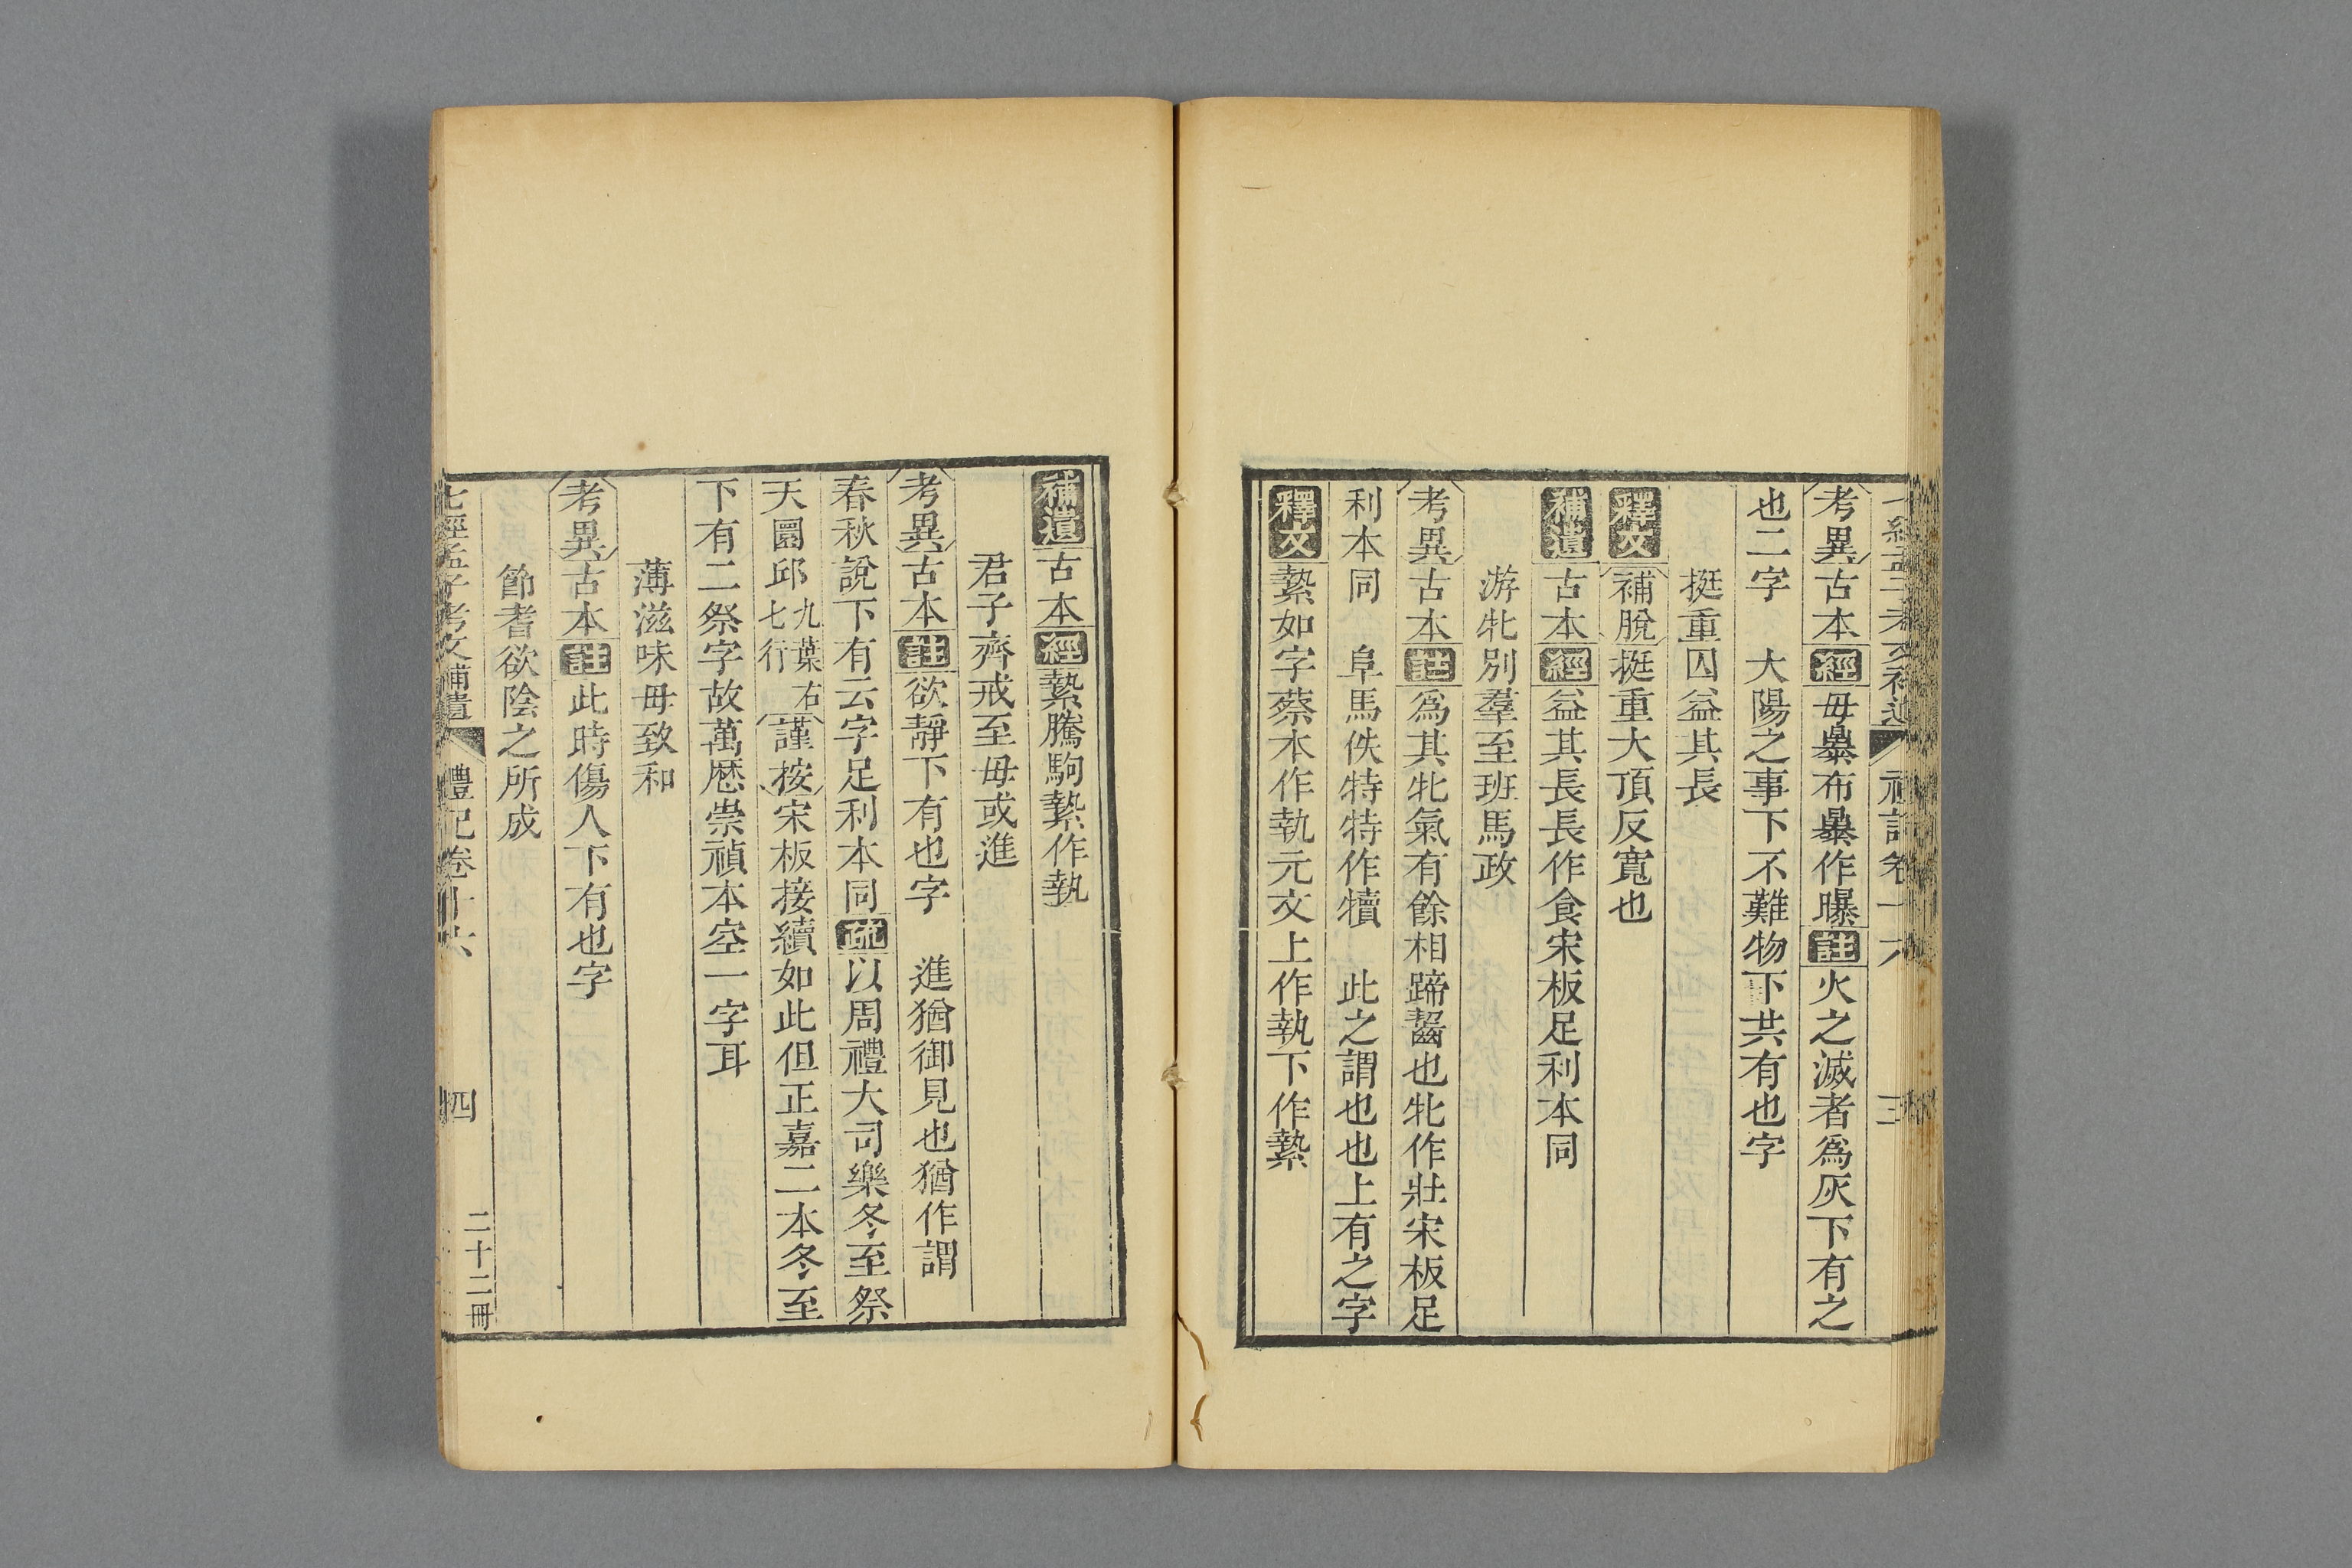 考異古本經毋暴布暴作曝註火之滅者爲灰下有之
也二字　大陽之事下不難物下共有也字
挺重囚益其長
釋文補脫挺重大頂反寬也
補遺古本經益其長長作食宋板足利本同
游牝別羣至班馬政
考異古本註爲其牝氣有餘相蹄齧也牝作壯宋板足
利本同　阜馬佚特特作犢　此之謂也也上有之字
釋文縶如字蔡本作執元文上作執下作縶
補遺古本經縶騰駒縶作執
君子齊戒至毋或進
考異古本註欲靜下有也字　進猶御見也猶作謂
春秋說下有云字足利本同疏以周禮大司樂冬至祭
天圜邱九葉右七行謹按宋板接續如此但正嘉二本冬至
下有二祭字故萬厯崇禎本空一字耳
薄滋味毋致和
考異古本註此時傷人下有也字
節耆欲陰之所成
七經孟子考文補遺　禮記卷十六　四　二十二冊